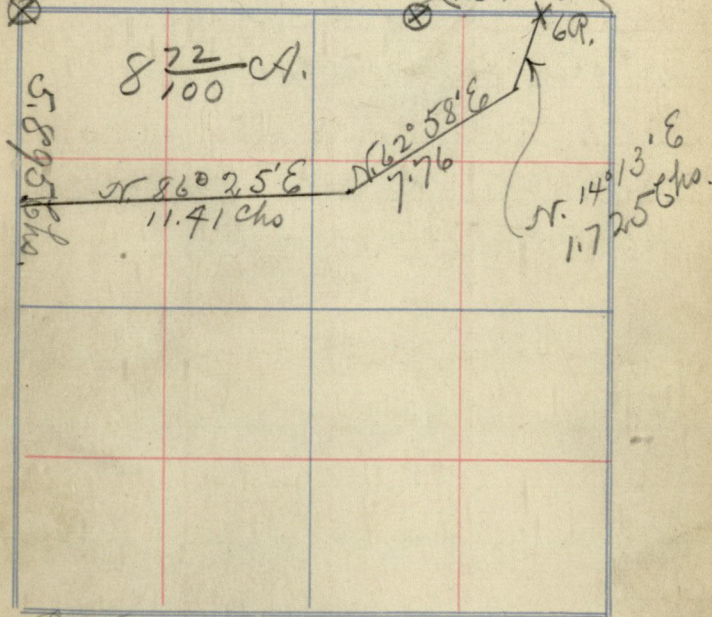 6R.
8 72/100 A.
5.895 Chs.
N. 86° 25' E
11.41 Chs
N. 62° 58' E
7.76
N. 14° 13' E
1.725 Chs.